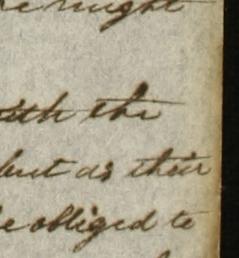 might
with the
but as their
be obliged to